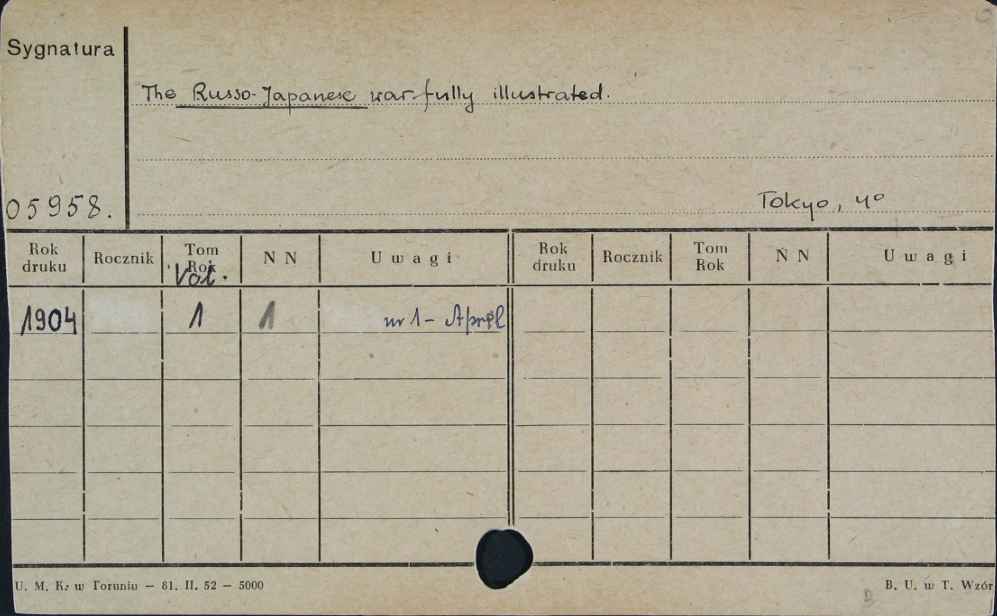 Sygnatura
The Russo-Japanese war fully illustrated.
05958.
Tokyo, 4º
Rok druku Rocznik Tom Rok Vol. N N Uwagi Rok druku Rocznik Tom Rok N N Uwagi
1904 1 1 nr 1 - April
U. M. K. w Toruniu — 81. II. 52 — 5000
B. U. w T. Wzór